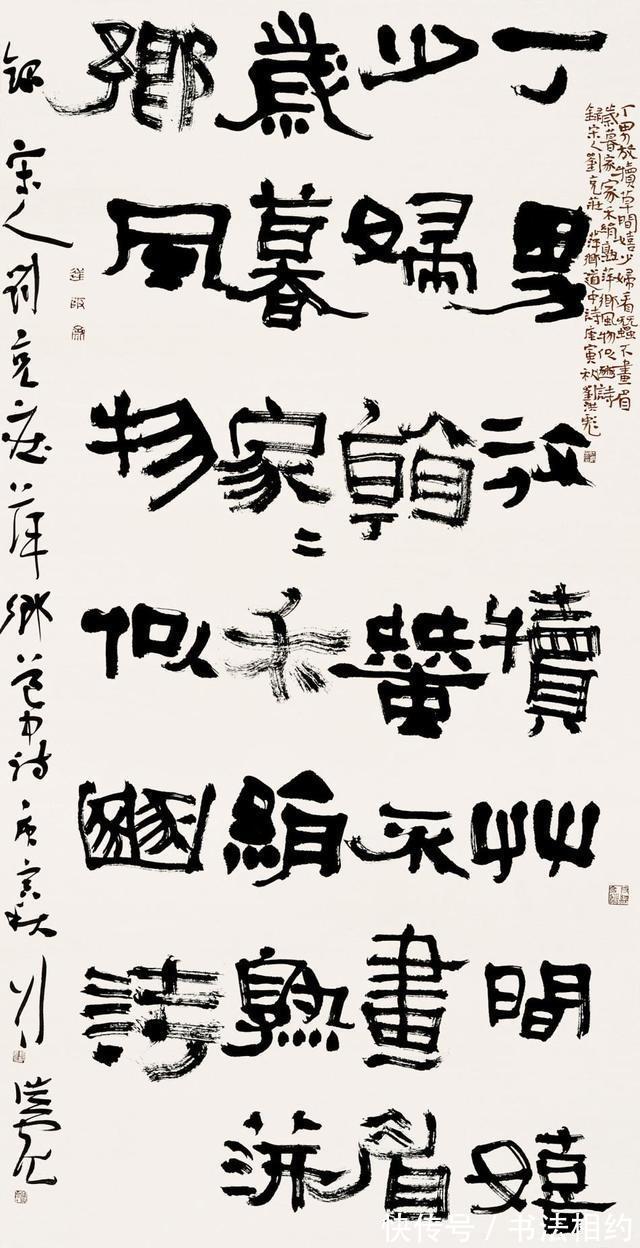 丁男放犢艸間嬉
少婦看蠶不畫眉
歲暮家〻禾絹熟萍
鄉風物似豳詩
錄宋人劉克莊萍鄉道中詩庚寅秋劉洪彪
丁男放犢草間嬉少婦看蠶不畫眉
歲暮家家禾絹熟萍鄉風物似豳詩
錄宋人劉克莊萍鄉道中詩庚寅秋劉洪彪
快传号 / 书法相约